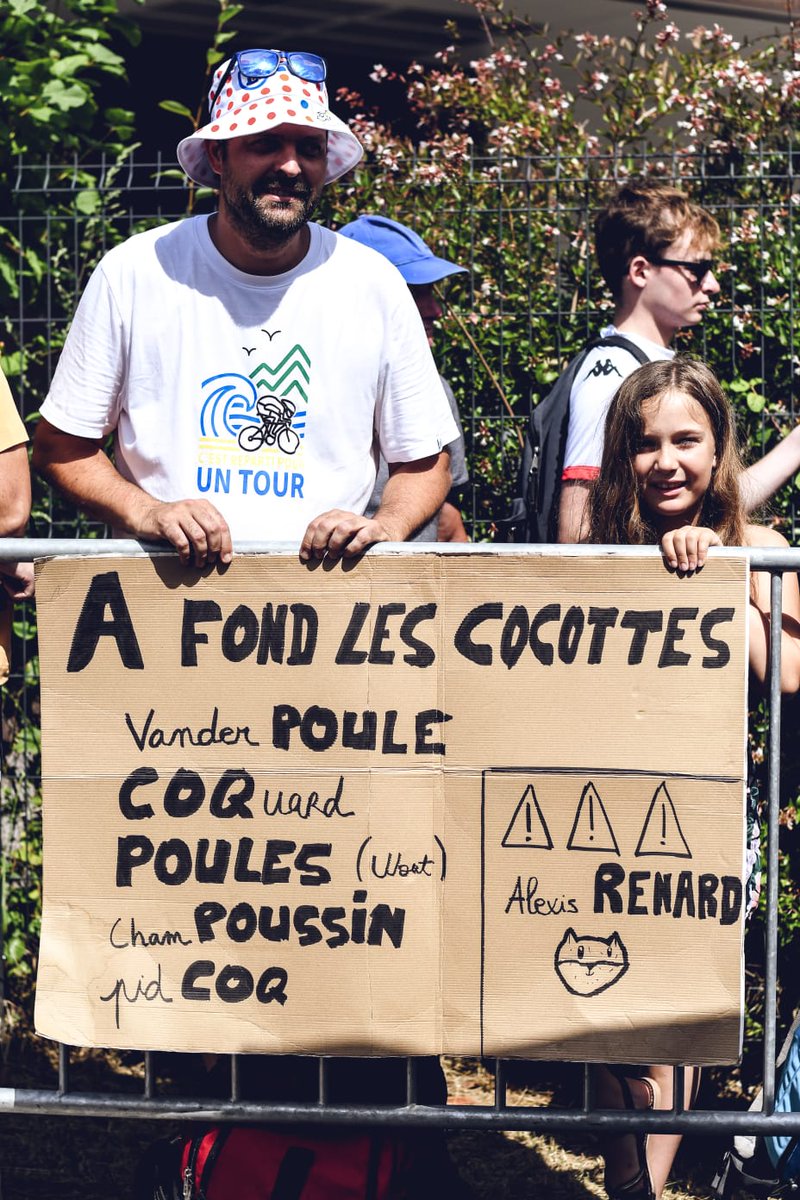 UN TOUR
A FOND LES COCOTTES
Vander POULE
COQuard
POULES (Wout)
Cham POUSSiN
pid COQ
! ! !
Alexis RENARD